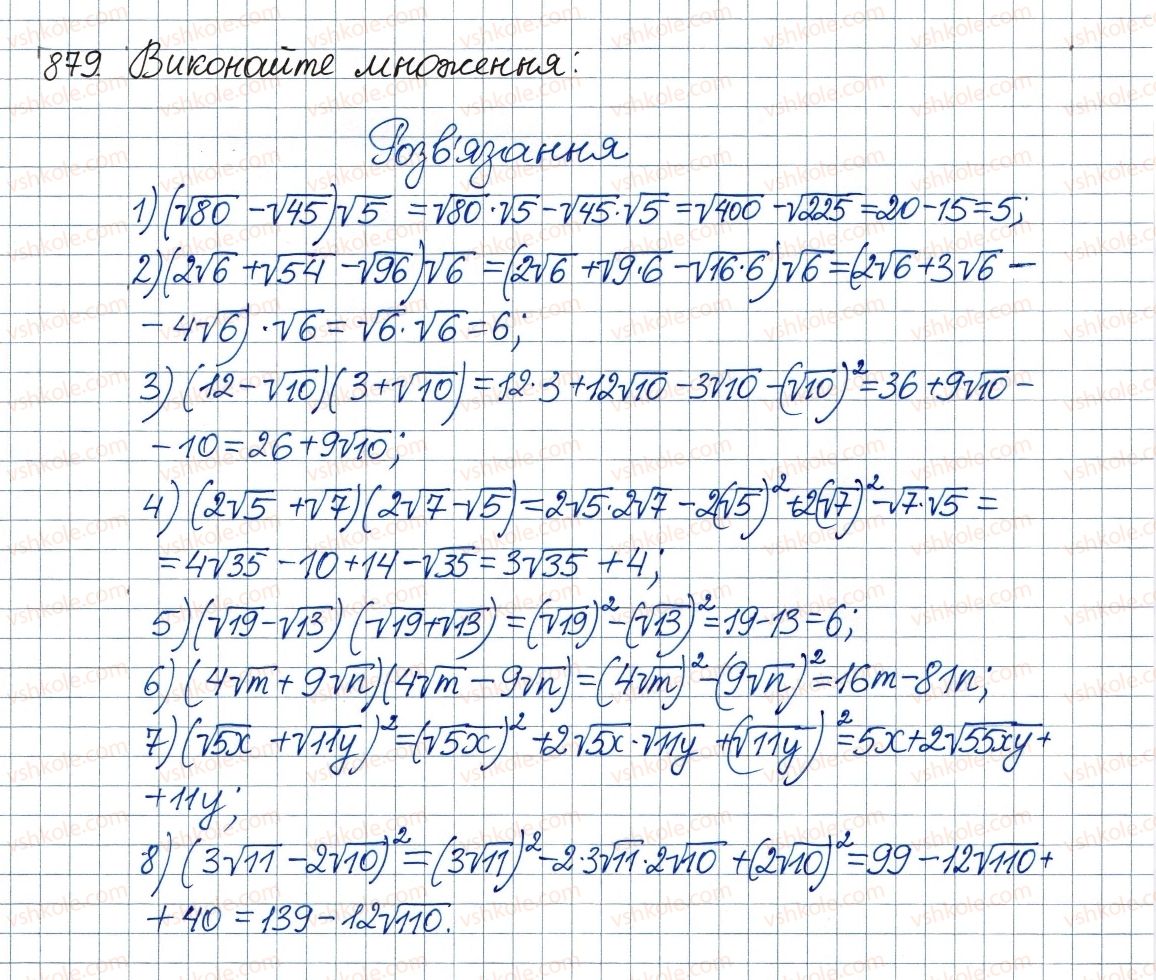 879. Виконайте множення:
Розв'язання
1) (√80 - √45)√5 = √80·√5 - √45·√5 = √400 - √225 = 20 - 15 = 5;
2) (2√6 + √54 - √96)√6 = (2√6 + √9·6 - √16·6)√6 = (2√6 + 3√6 -
- 4√6)·√6 = √6·√6 = 6;
3) (12 - √10)(3 + √10) = 12·3 + 12√10 - 3√10 - (√10)² = 36 + 9√10 -
- 10 = 26 + 9√10;
4) (2√5 + √7)(2√7 - √5) = 2√5·2√7 - 2(√5)² + 2(√7)² - √7·√5 =
= 4√35 - 10 + 14 - √35 = 3√35 + 4;
5) (√19 - √13)(√19 + √13) = (√19)² - (√13)² = 19 - 13 = 6;
6) (4√m + 9√n)(4√m - 9√n) = (4√m)² - (9√n)² = 16m - 81n;
7) (√5x + √11y)² = (√5x)² + 2√5x·√11y + (√11y)² = 5x + 2√55xy +
+ 11y;
8) (3√11 - 2√10)² = (3√11)² - 2·3√11·2√10 + (2√10)² = 99 - 12√110 +
+ 40 = 139 - 12√110.